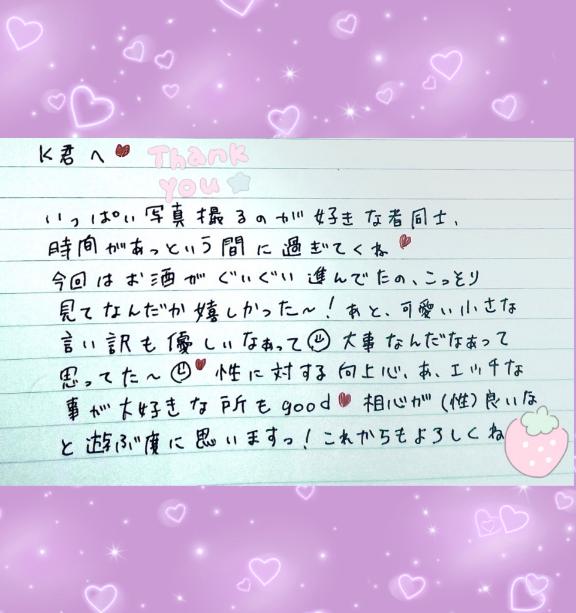 K君へ
Thank
you
いっぱい写真撮るのが好きな者同士、
時間があっという間に過ぎてくね
今回はお酒がぐいぐい進んでたの、こっそり
見てなんだか嬉しかった〜!あと、可愛い小さな
言い訳も優しいなぁって☺大事なんだなぁって
思ってた〜☺性に対する向上心、あ、エッチな
事が大好きな所もgood 相心が(性)良いな
と遊ぶ度に思いますっ!これからもよろしくね